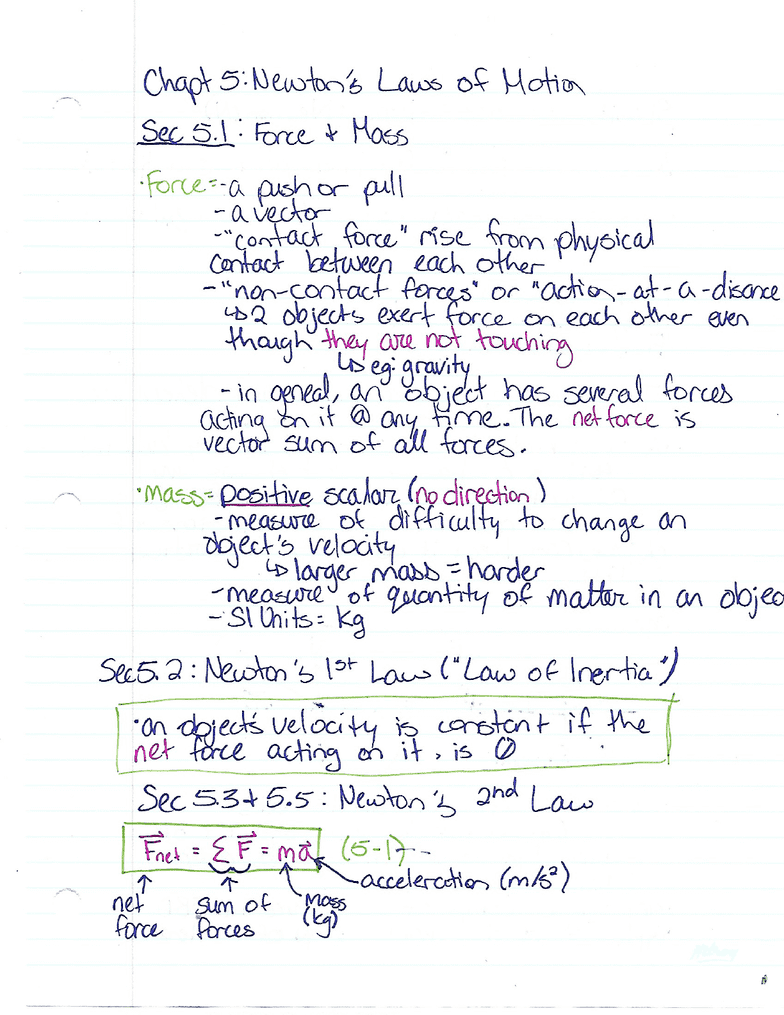 Chapt 5: Newton's Laws of Motion
Sec 5.1: Force + Mass
·Force= -a push or pull
-a vector
-"contact force" rise from physical
contact between each other
-"non-contact forces" or "action-at-a-disance
↳2 objects exert force on each other even
though they are not touching
↳eg: gravity
-in geneal, an object has several forces
acting on it @ any time. The net force is
vector sum of all forces.
·Mass= positive scalar (no direction)
-measure of difficulty to change an
object's velocity
↳larger mass = harder
-measure of quantity of matter in an objec
-SI Units= Kg
Sec 5.2: Newton's 1st Law ("Law of Inertia")
·an object's velocity is constant if the
net force acting on it, is 0
Sec 5.3 + 5.5: Newton's 2nd Law
F⃗net = ΣF⃗ = ma⃗ (5-1)
acceleration (m/s²)
net sum of mass
force forces (kg)